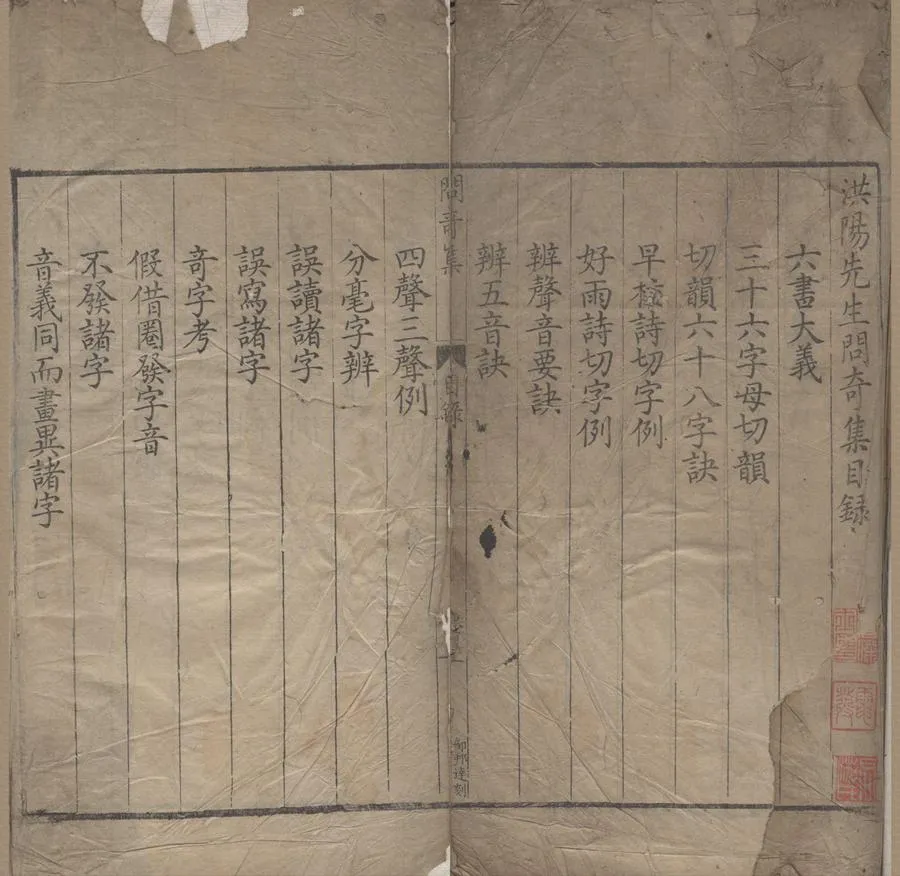 洪陽先生問奇集目録
六書大義
三十六字母切韻
切韻六十八字訣
早梅詩切字例
好雨詩切字例
辨聲音要訣
辨五音訣
問奇集
目錄
四聲三聲例
分毫字辨
誤讀諸字
誤寫諸字
竒字考
假借圈發字音
不發諸字
音義同而畫異諸字